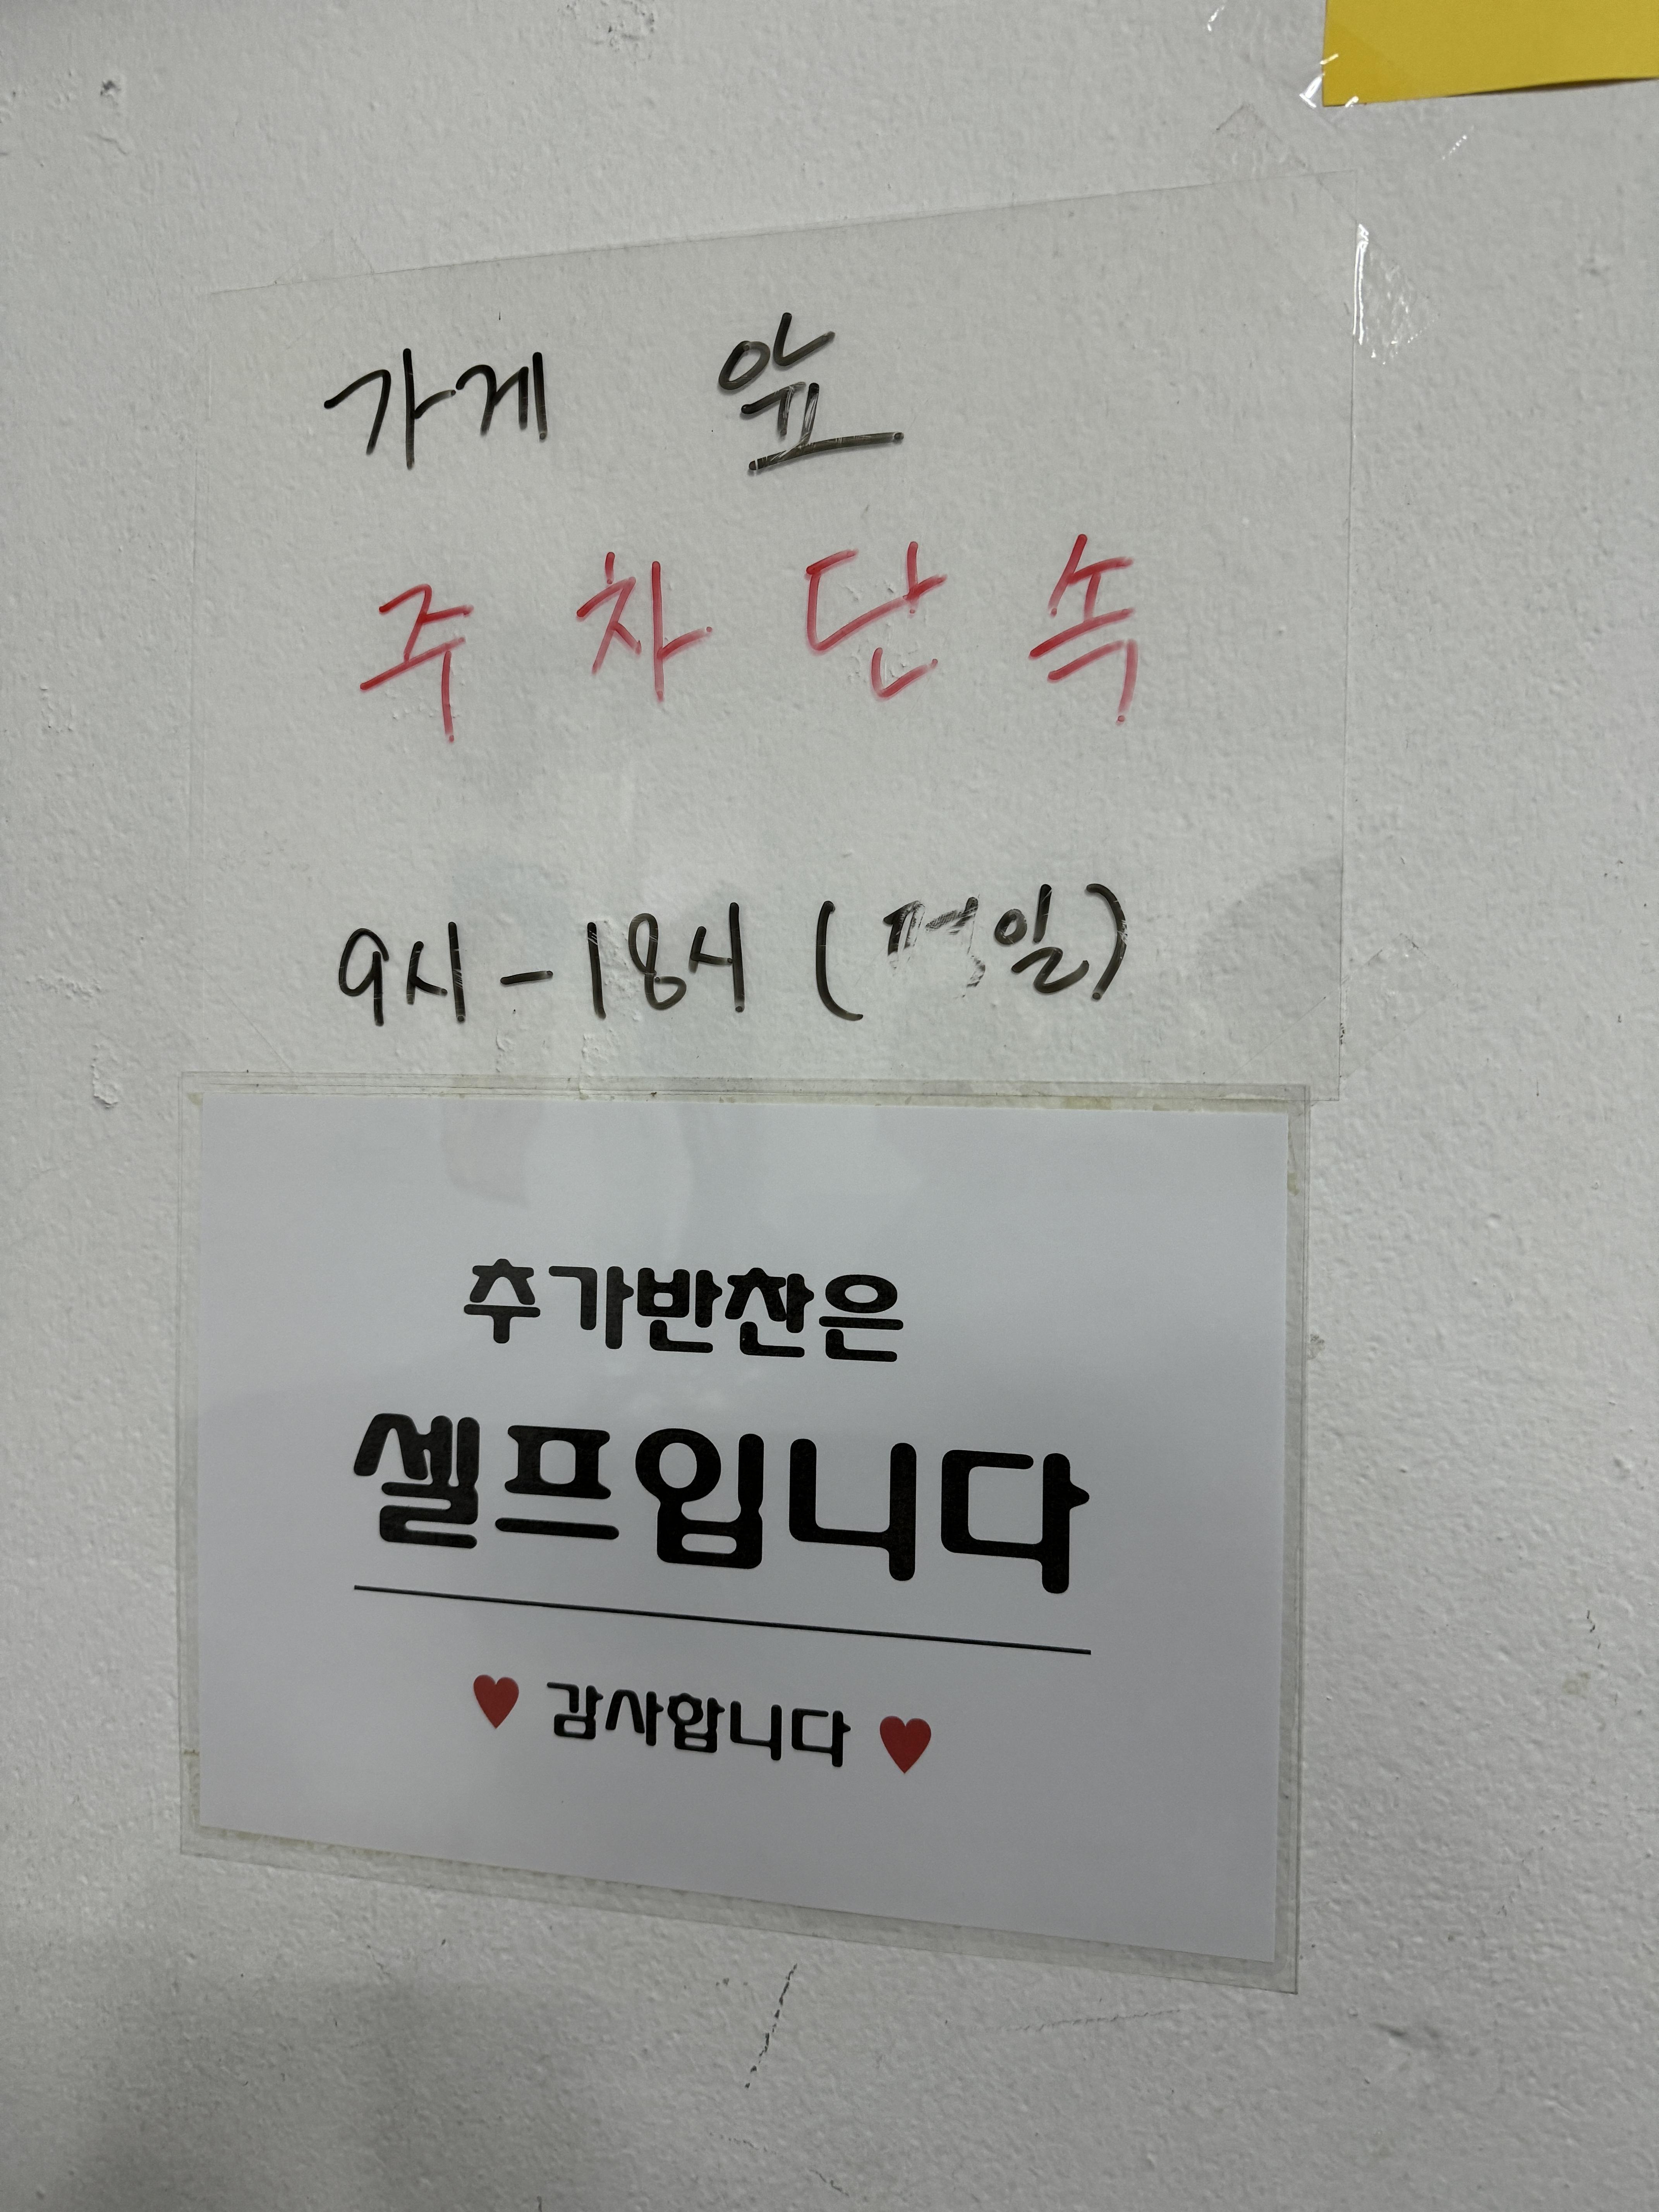 가게 앞
주차단속
9시-18시 (평일)
추가반찬은
셀프입니다
♥ 감사합니다 ♥